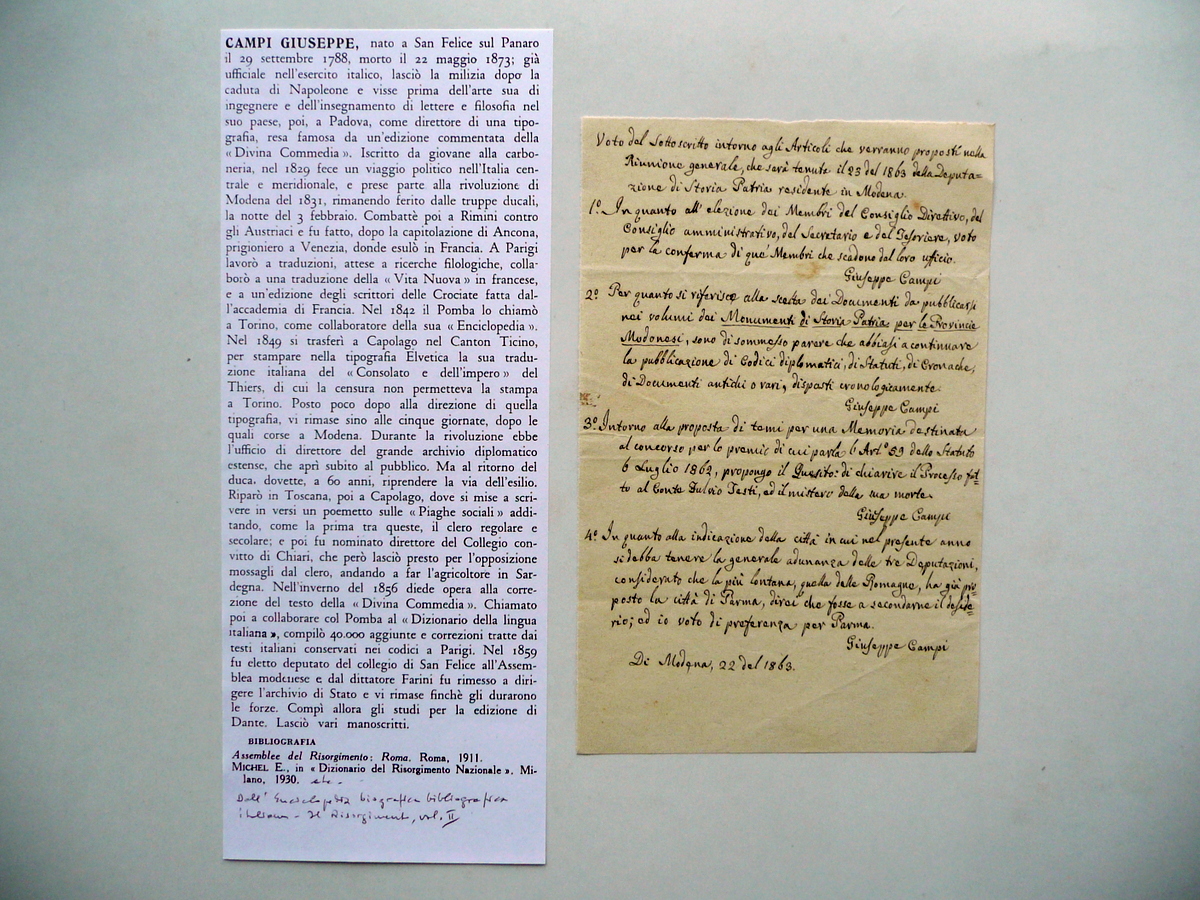 CAMPI GIUSEPPE, nato a San Felice sul Panaro
il 29 settembre 1788, morto il 22 maggio 1873; già
ufficiale nell'esercito italico, lasciò la milizia dopo la
caduta di Napoleone e visse prima dell'arte sua di
ingegnere e dell'insegnamento di lettere e filosofia nel
suo paese, poi, a Padova, come direttore di una tipo-
grafia, resa famosa da un'edizione commentata della
« Divina Commedia ». Iscritto da giovane alla carbo-
neria, nel 1829 fece un viaggio politico nell'Italia cen-
trale e meridionale, e prese parte alla rivoluzione di
Modena del 1831, rimanendo ferito dalle truppe ducali,
la notte del 3 febbraio. Combattè poi a Rimini contro
gli Austriaci e fu fatto, dopo la capitolazione di Ancona,
prigioniero a Venezia, donde esulò in Francia. A Parigi
lavorò a traduzioni, attese a ricerche filologiche, colla-
borò a una traduzione della « Vita Nuova » in francese,
e a un'edizione degli scrittori delle Crociate fatta dal-
l'accademia di Francia. Nel 1842 il Pomba lo chiamò
a Torino, come collaboratore della sua « Enciclopedia ».
Nel 1849 si trasferì a Capolago nel Canton Ticino,
per stampare nella tipografia Elvetica la sua tradu-
zione italiana del « Consolato e dell'impero » del
Thiers, di cui la censura non permetteva la stampa
a Torino. Posto poco dopo alla direzione di quella
tipografia, vi rimase sino alle cinque giornate, dopo le
quali corse a Modena. Durante la rivoluzione ebbe
l'ufficio di direttore del grande archivio diplomatico
estense, che aprì subito al pubblico. Ma al ritorno del
duca. dovette, a 60 anni, riprendere la via dell'esilio.
Riparò in Toscana, poi a Capolago, dove si mise a scri-
vere in versi un poemetto sulle « Piaghe sociali » addi-
tando, come la prima tra queste, il clero regolare e
secolare; e poi fu nominato direttore del Collegio con-
vitto di Chiari, che però lasciò presto per l'opposizione
mossagli dal clero, andando a far l'agricoltore in Sar-
degna. Nell'inverno del 1856 diede opera alla corre-
zione del testo della « Divina Commedia ». Chiamato
poi a collaborare col Pomba al « Dizionario della lingua
italiana », compilò 40.000 aggiunte e correzioni tratte dai
testi italiani conservati nei codici a Parigi. Nel 1859
fu eletto deputato del collegio di San Felice all'Assem-
blea modenese e dal dittatore Farini fu rimesso a diri-
gere l'archivio di Stato e vi rimase finchè gli durarono
le forze. Compì allora gli studi per la edizione di
Dante. Lasciò vari manoscritti.
BIBLIOGRAFIA
Assemblee del Risorgimento: Roma. Roma, 1911.
MICHEL E., in « Dizionario del Risorgimento Nazionale ». Mi-
lano, 1930. etc.
Dall' Enciclopedia biografica bibliografica
italiana - Il Risorgimento, vol. II
Voto del Sottoscritto intorno agli Articoli che verranno proposti nella
Riunione generale, che sarà tenuta il 25 del 1863 della Deputa=
zione di Storia Patria residente in Modena.
1.º In quanto all' elezione dei Membri del Consiglio Direttivo, del
Consiglio amministrativo, del Secretario e del Tesoriere, voto
per la conferma di que' Membri che scadono dal loro ufficio.
Giuseppe Campi
2.º Per quanto si riferisce alla scelta dei Documenti da pubblicarsi
nei volumi dei Monumenti di Storia Patria per le Provincie
Modonesi, sono di sommesso parere che abbiasi a continuare
la pubblicazione di Codici diplomatici, di Statuti, di Cronache,
di Documenti antichi o rari, disposti cronologicamente.
Giuseppe Campi
3.º Intorno alla proposta di temi per una Memoria destinata
al concorso per lo premio di cui parla l'Art.º 59 dello Statuto
6 Luglio 1862, propongo il Quesito: di chiarire il Processo fat=
to al Conte Fulvio Testi, ed il mistero della sua morte.
Giuseppe Campi
4.º In quanto alla indicazione della città in cui nel presente anno
si debba tenere la generale adunanza delle tre Deputazioni,
considerato che la più lontana, quella delle Romagne, ha già pro=
posto la città di Parma, direi che fosse a secondarne il deside=
rio; ed io voto di preferenza per Parma.
Giuseppe Campi
Di Modena, 22 del 1863.